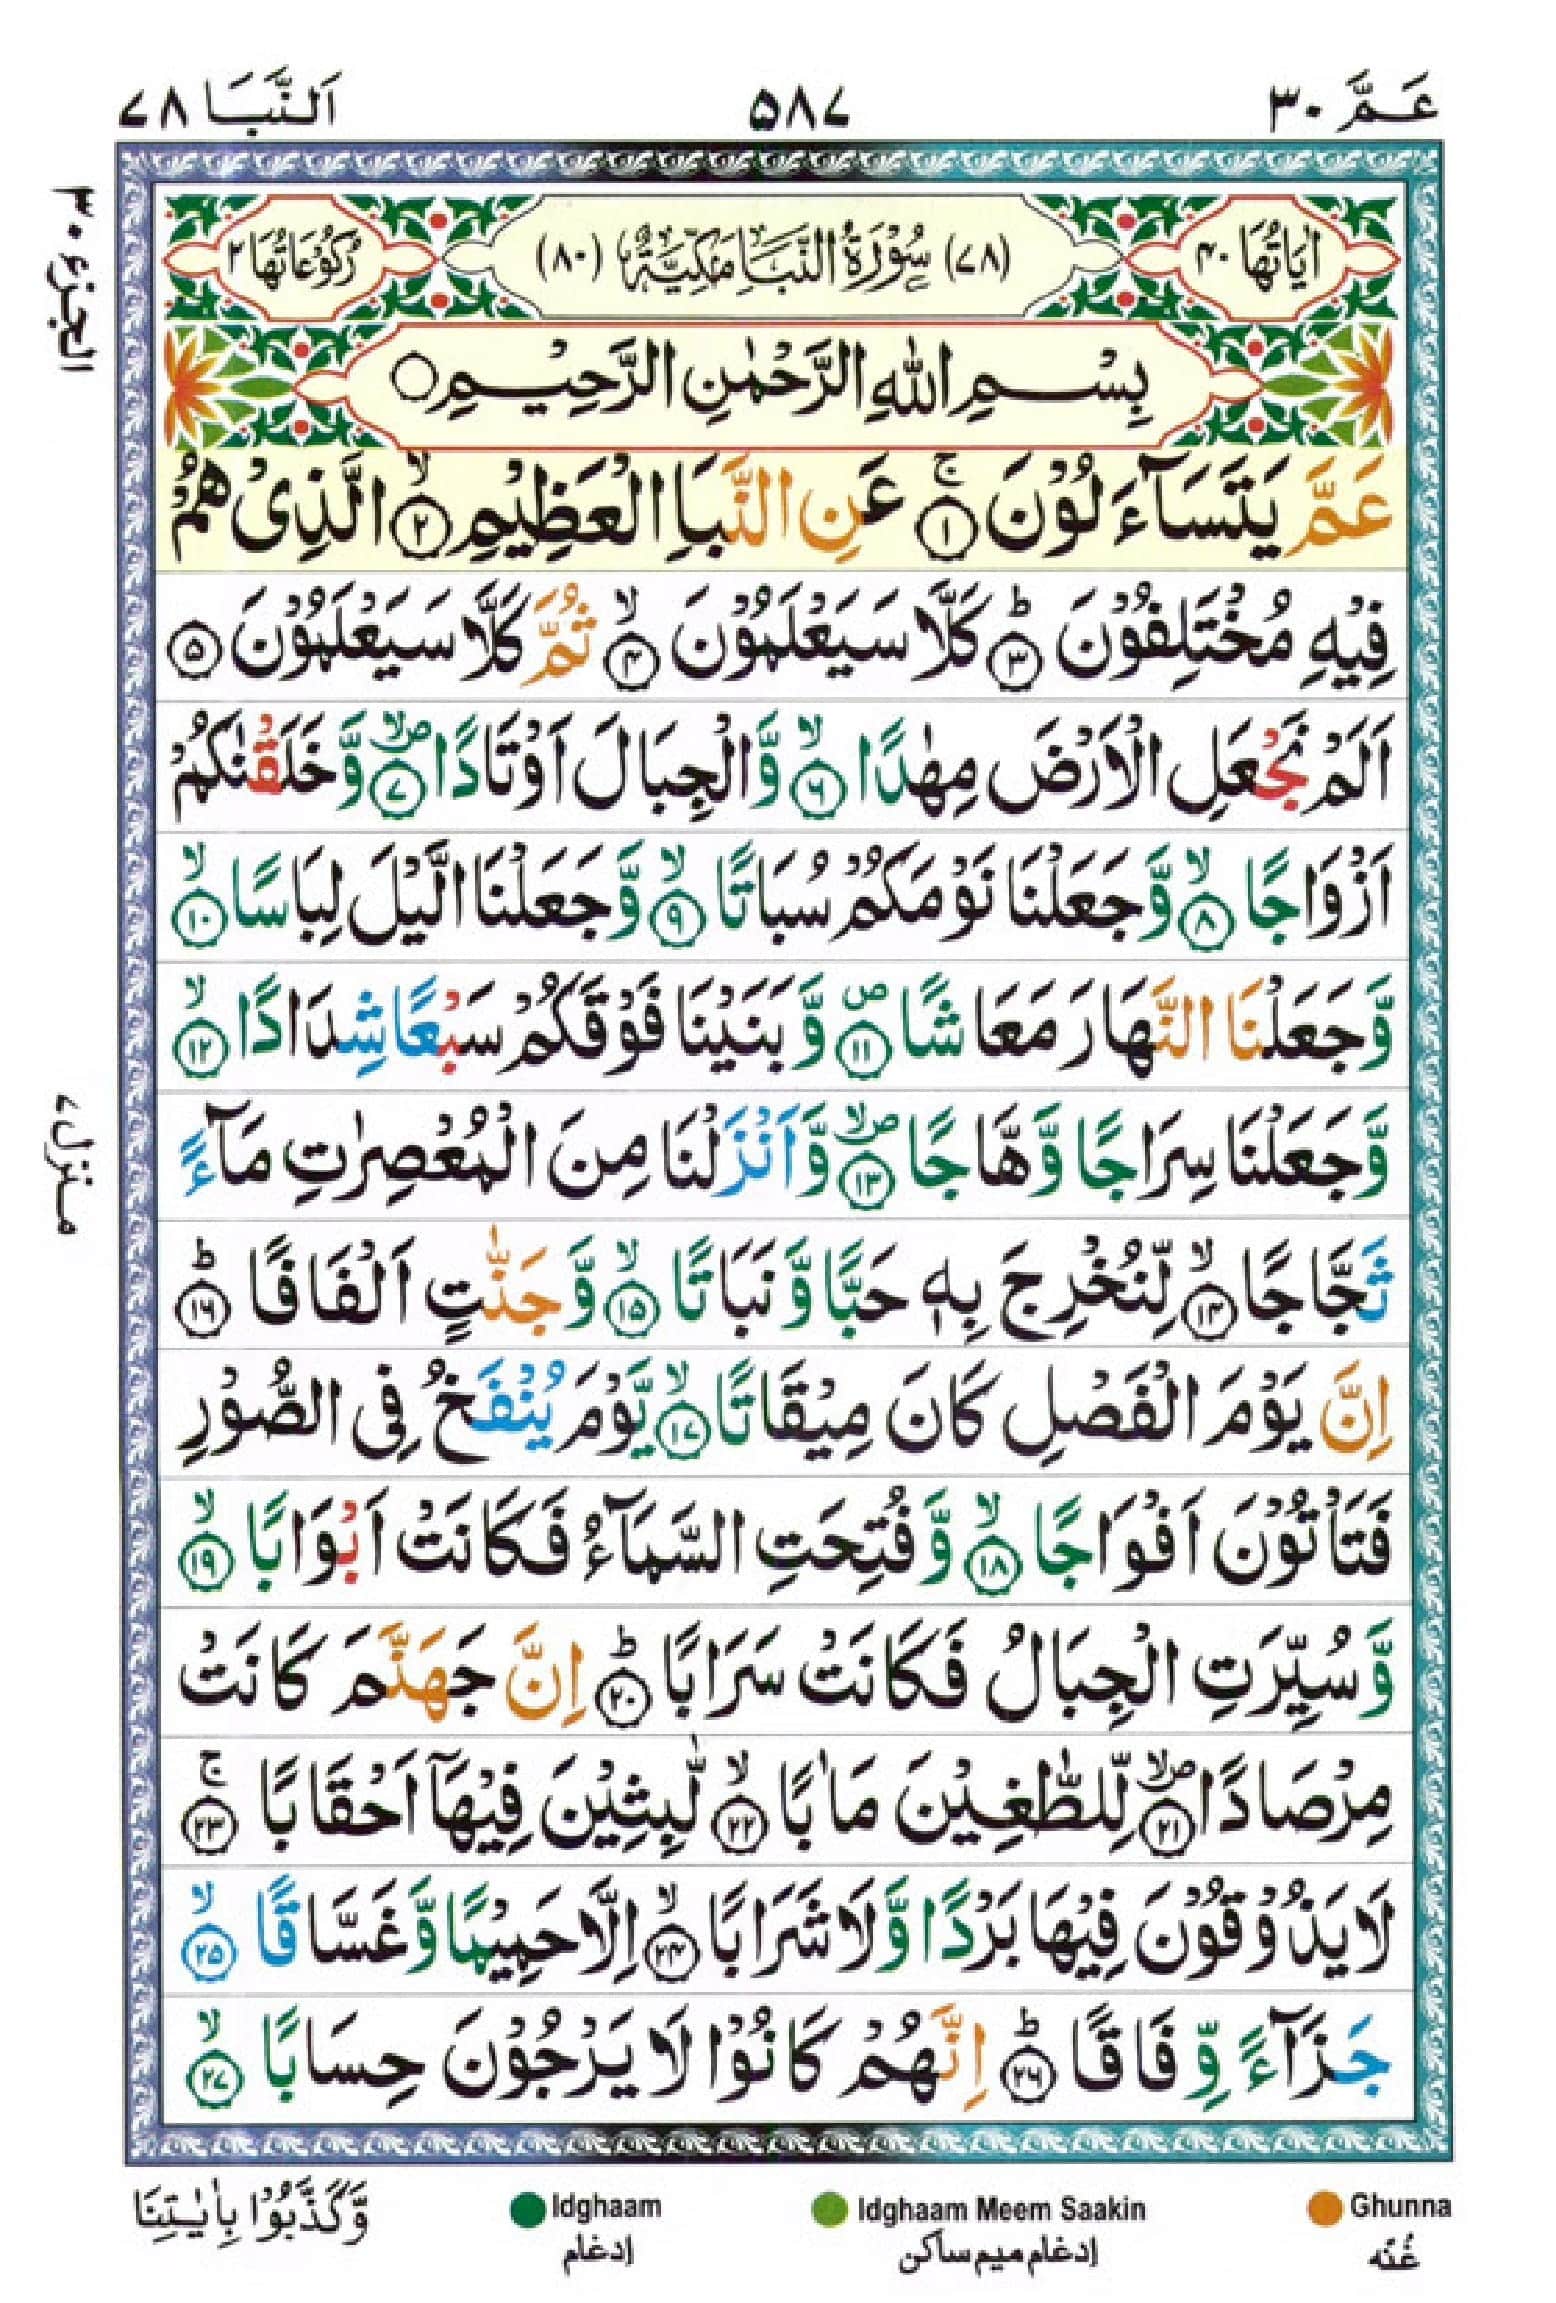 عَمَّ ۳۰
۵۸۷
اَلنَّبَا ۷۸
اٰيَاتُهَا ۴۰
(۷۸) سُوْرَةُ النَّبَاِ مَكِّيَّةٌ (۸۰)
رُكُوْعَاتُهَا ۲
بِسْمِ اللّٰهِ الرَّحْمٰنِ الرَّحِيْمِ ○
عَمَّ يَتَسَآءَلُوْنَ ۚ‏﴿۱﴾ عَنِ النَّبَاِ الْعَظِيْمِ ۙ‏﴿۲﴾ الَّذِىْ هُمْ
فِيْهِ مُخْتَلِفُوْنَ ؕ‏﴿۳﴾ كَلَّا سَيَعْلَمُوْنَ ۙ‏﴿۴﴾ ثُمَّ كَلَّا سَيَعْلَمُوْنَ ﴿۵﴾
اَلَمْ نَجْعَلِ الْاَرْضَ مِهٰدًا ۙ‏﴿۶﴾ وَّالْجِبَالَ اَوْتَادًا ۪ۙ‏﴿۷﴾ وَّخَلَقْنٰكُمْ
اَزْوَاجًا ۙ‏﴿۸﴾ وَّجَعَلْنَا نَوْمَكُمْ سُبَاتًا ۙ‏﴿۹﴾ وَّجَعَلْنَا الَّيْلَ لِبَاسًا ۙ‏﴿۱۰﴾
وَّجَعَلْنَا النَّهَارَ مَعَاشًا ۪‏﴿۱۱﴾ وَّبَنَيْنَا فَوْقَكُمْ سَبْعًا شِدَادًا ۙ‏﴿۱۲﴾
وَّجَعَلْنَا سِرَاجًا وَّهَّاجًا ۪ۙ‏﴿۱۳﴾ وَّاَنْزَلْنَا مِنَ الْمُعْصِرٰتِ مَآءً
ثَجَّاجًا ۙ‏﴿۱۴﴾ لِّنُخْرِجَ بِهٖ حَبًّا وَّنَبَاتًا ۙ‏﴿۱۵﴾ وَّجَنّٰتٍ اَلْفَافًا ؕ‏﴿۱۶﴾
اِنَّ يَوْمَ الْفَصْلِ كَانَ مِيْقَاتًا ۙ‏﴿۱۷﴾ يَّوْمَ يُنْفَخُ فِى الصُّوْرِ
فَتَاْتُوْنَ اَفْوَاجًا ۙ‏﴿۱۸﴾ وَّفُتِحَتِ السَّمَآءُ فَكَانَتْ اَبْوَابًا ۙ‏﴿۱۹﴾
وَّسُيِّرَتِ الْجِبَالُ فَكَانَتْ سَرَابًا ؕ‏﴿۲۰﴾ اِنَّ جَهَنَّمَ كَانَتْ
مِرْصَادًا ۪ۙ‏﴿۲۱﴾ لِّلطّٰغِيْنَ مَاٰبًا ۙ‏﴿۲۲﴾ لّٰبِثِيْنَ فِيْهَاۤ اَحْقَابًا ۚ‏﴿۲۳﴾
لَا يَذُوْقُوْنَ فِيْهَا بَرْدًا وَّلَا شَرَابًا ۙ‏﴿۲۴﴾ اِلَّا حَمِيْمًا وَّغَسَّاقًا ۙ‏﴿۲۵﴾
جَزَآءً وِّفَاقًا ؕ‏﴿۲۶﴾ اِنَّهُمْ كَانُوْا لَا يَرْجُوْنَ حِسَابًا ۙ‏﴿۲۷﴾
الجزء ۳۰
منزل ۷
Ghunna
غُنّه
Idghaam Meem Saakin
إدغام ميم ساكن
Idghaam
إدغام
وَّكَذَّبُوْا بِاٰيٰتِنَا